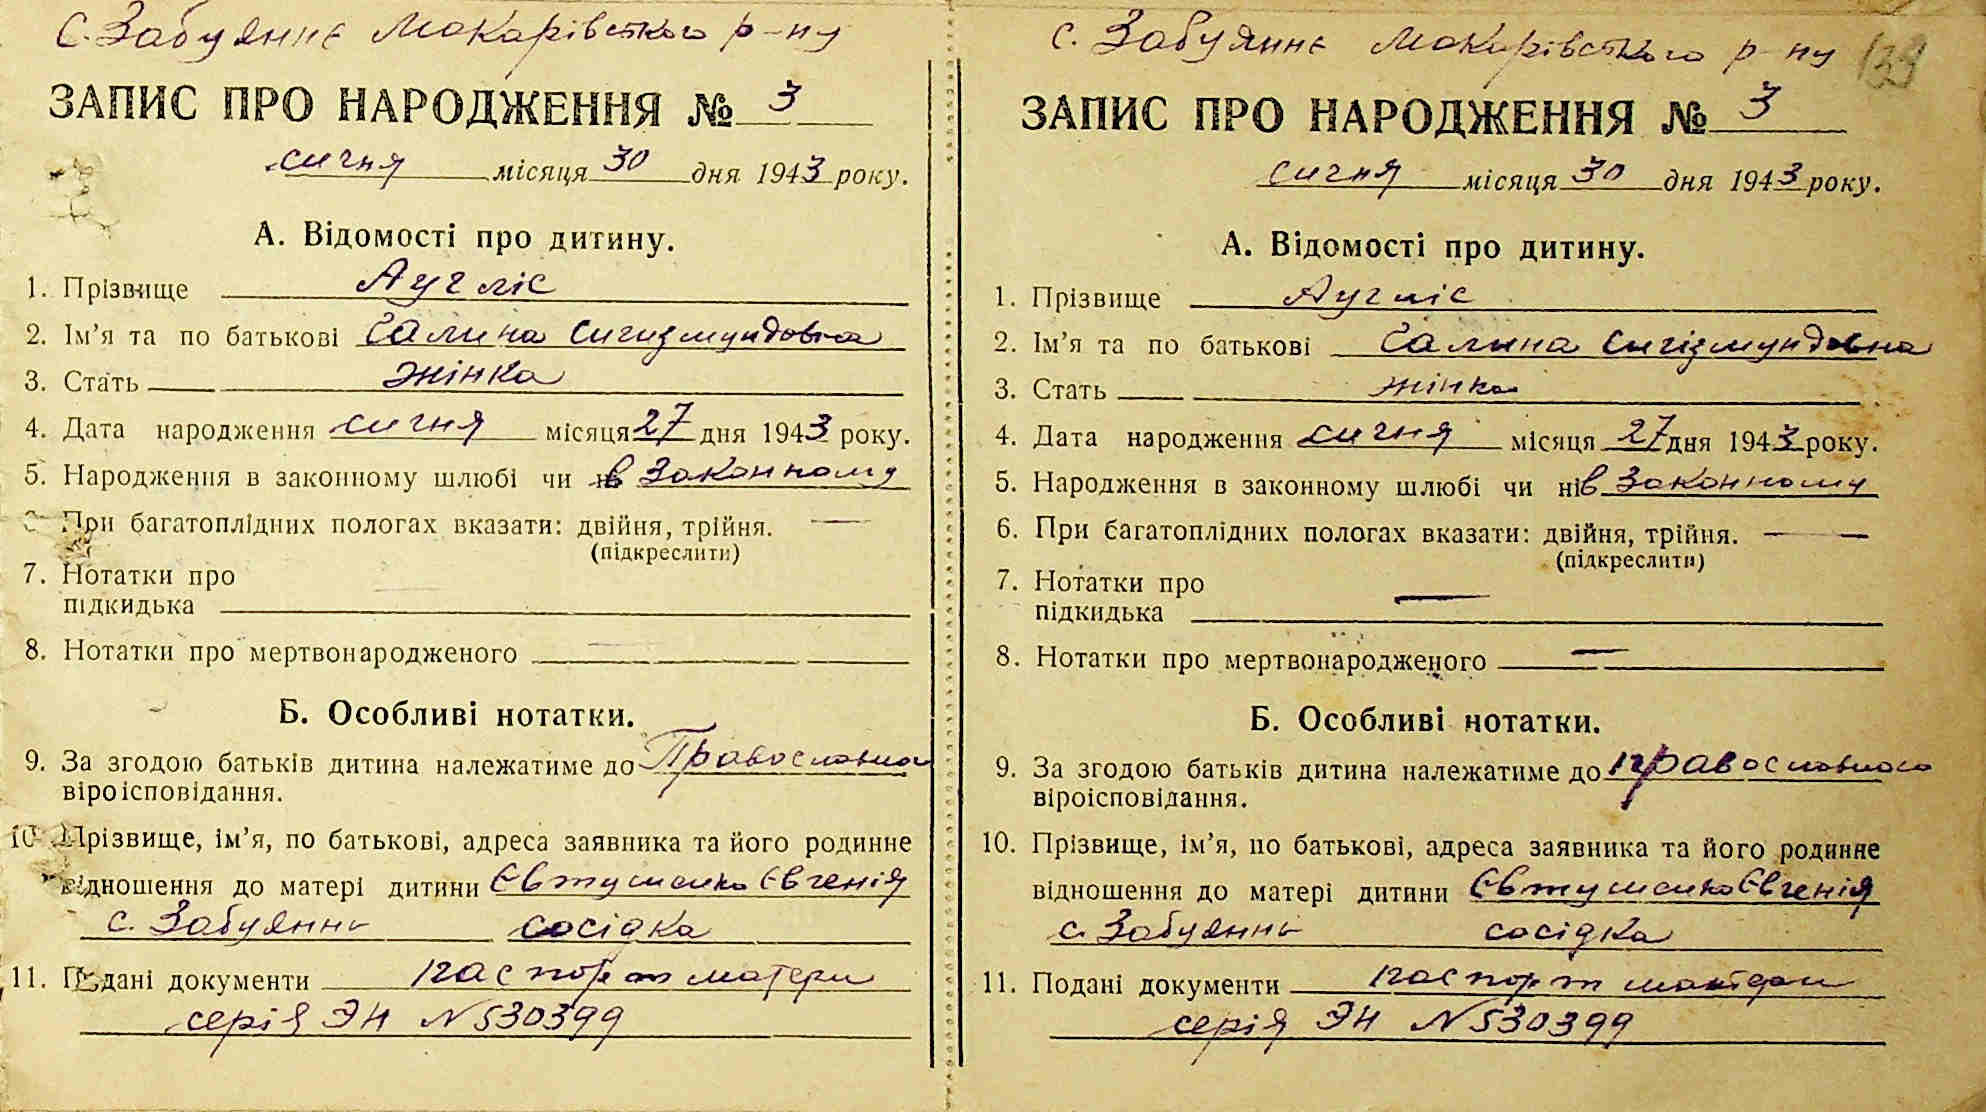 с. Забуяннє Макарівського р-ну
ЗАПИС ПРО НАРОДЖЕННЯ № 3
сичня місяця 30 дня 1943 року.
А. Відомості про дитину.
1. Прізвище Аугліс
2. Ім'я та по батькові Галина Сигизмундовна
3. Стать жінка
4. Дата народження сичня місяця 27 дня 1943 року.
5. Народження в законному шлюбі чи ні в законному
6. При багатоплідних пологах вказати: двійня, трійня. —
(підкреслити)
7. Нотатки про
підкидька
8. Нотатки про мертвонародженого
Б. Особливі нотатки.
9. За згодою батьків дитина належатиме до Православного
віроісповідання.
10. Прізвище, ім'я, по батькові, адреса заявника та його родинне
відношення до матері дитини Євтушенко Євгенія
с. Забуяннь сосідка
11. Подані документи паспорт матери
серія ЭН N 530399
с. Забуяннє Макарівського р-ну 139
ЗАПИС ПРО НАРОДЖЕННЯ № 3
сичня місяця 30 дня 1943 року.
А. Відомості про дитину.
1. Прізвище Аугліс
2. Ім'я та по батькові Галина Сигізмундовна
3. Стать жінка
4. Дата народження сичня місяця 27 дня 1943 року.
5. Народження в законному шлюбі чи ні в законному
6. При багатоплідних пологах вказати: двійня, трійня. —
(підкреслити)
7. Нотатки про
підкидька —
8. Нотатки про мертвонародженого —
Б. Особливі нотатки.
9. За згодою батьків дитина належатиме до православного
віроісповідання.
10. Прізвище, ім'я, по батькові, адреса заявника та його родинне
відношення до матері дитини Євтушенко Євгенія
с. Забуяннь сосідка
11. Подані документи паспорт матери
серія ЭН N 530399